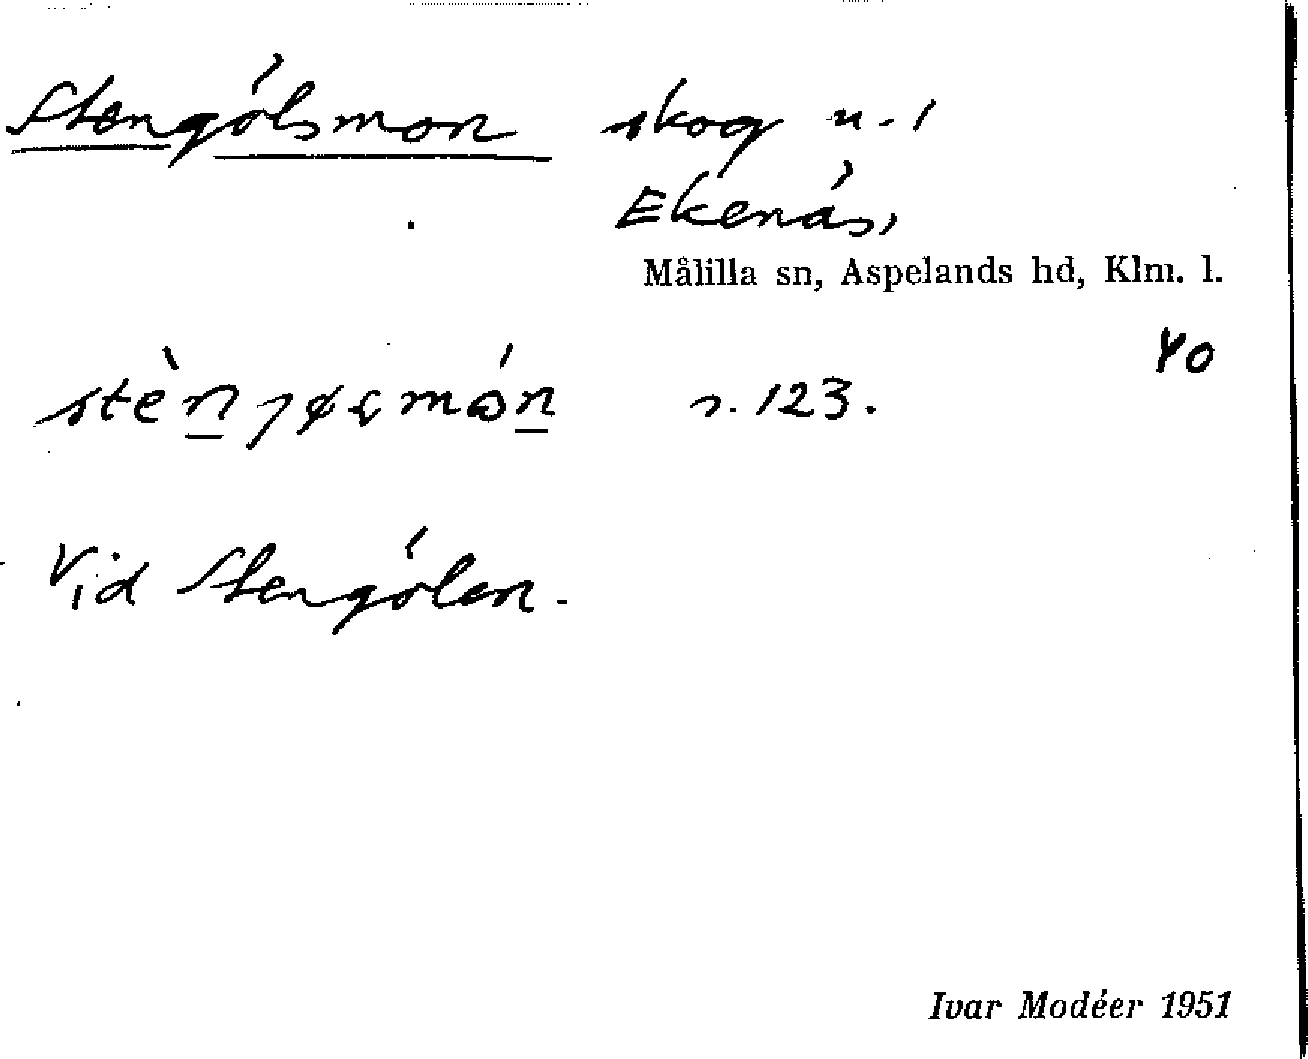 Stengölsmon skog n. 1
Ekenäs,
Målilla sn, Aspelands hd, Klm. l.
40
s. 123.
Vid Stengölen.
Ivar Modéer 1951